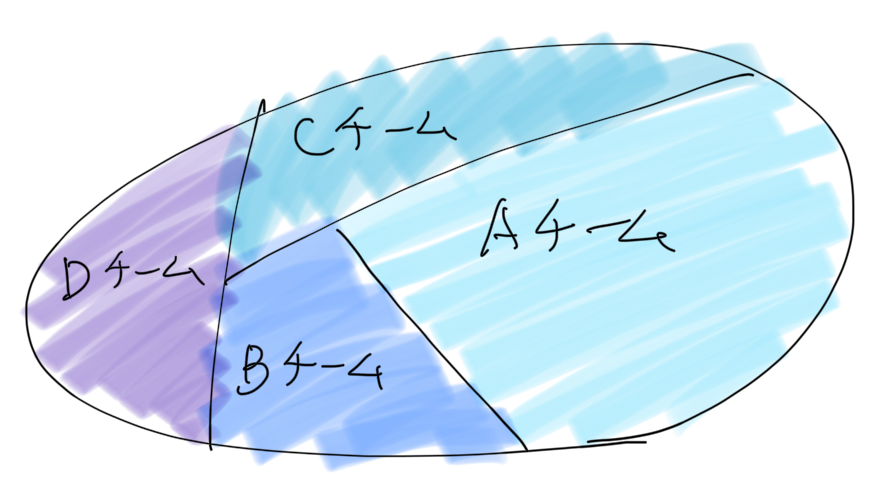 Cチーム
Aチーム
Dチーム
Bチーム